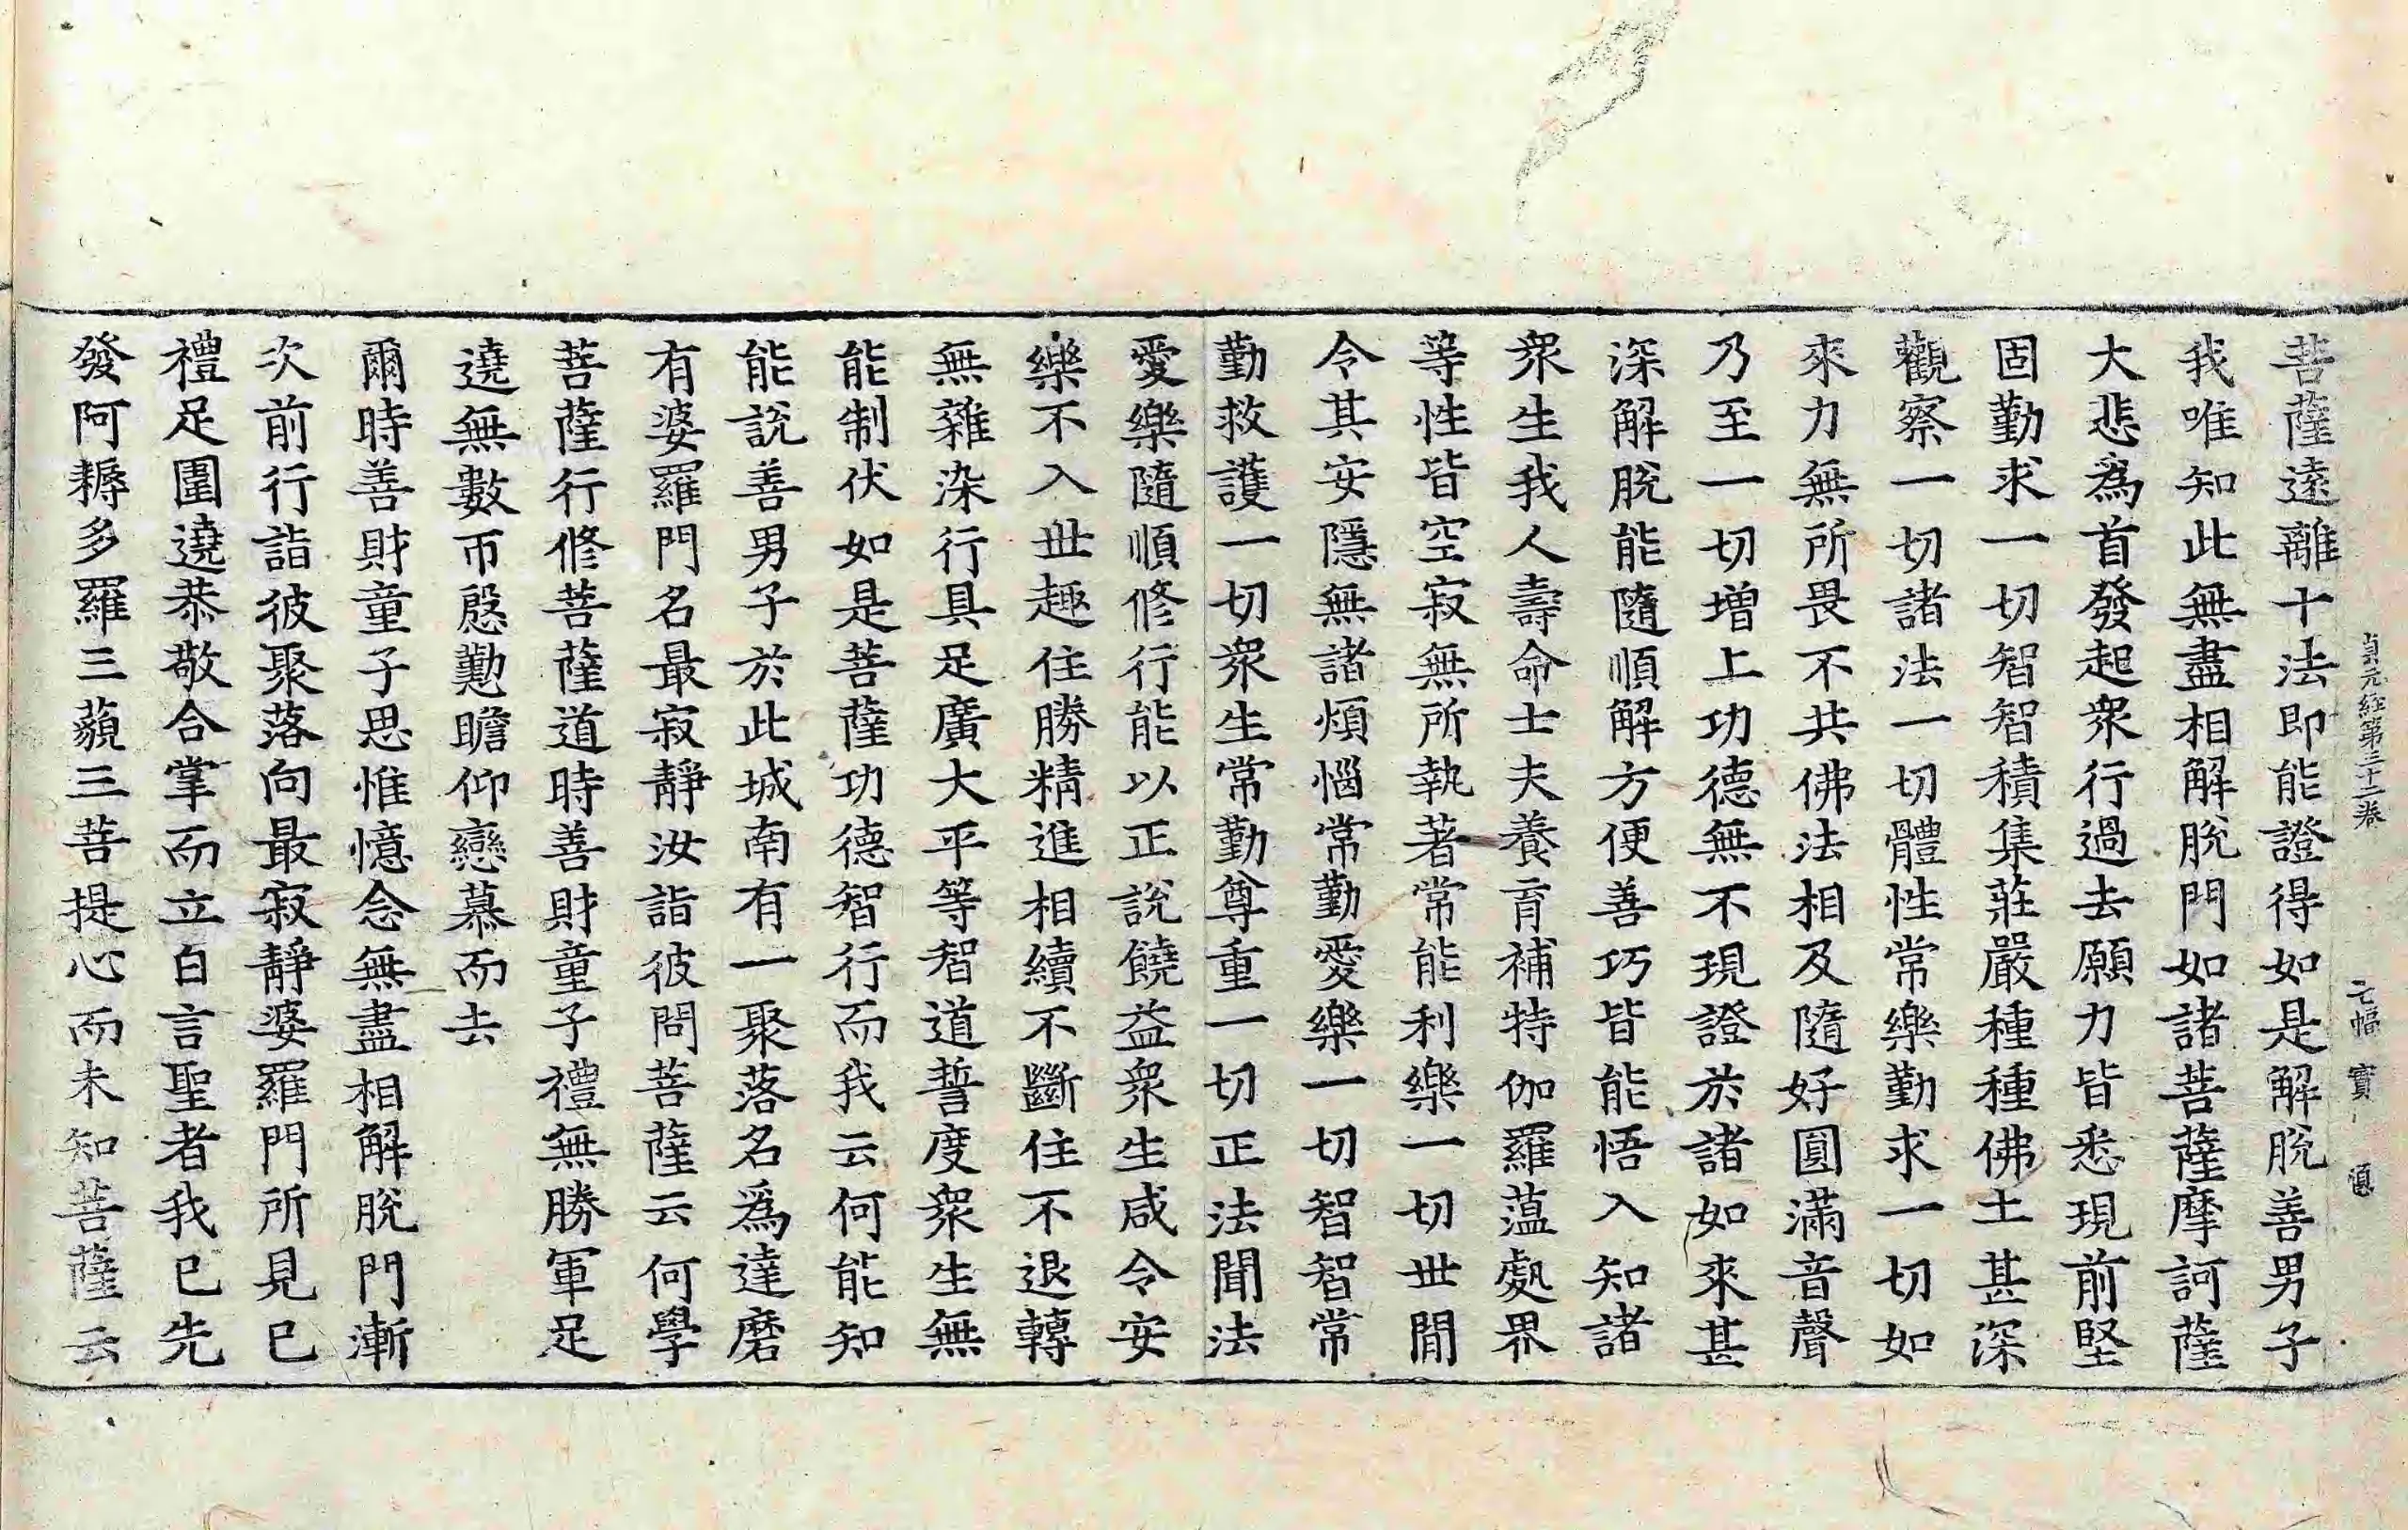 貞元經第三十二卷 七幅 寶
菩薩遠離十法即能證得如是解脫善男子
我唯知此無盡相解脫門如諸菩薩摩訶薩
大悲為首發起衆行過去願力皆悉現前堅
固勤求一切智智積集莊嚴種種佛土甚深
觀察一切諸法一切體性常樂勤求一切如
來力無所畏不共佛法相及隨好圓滿音聲
乃至一切增上功德無不現證於諸如來甚
深解脫能隨順解方便善巧皆能悟入知諸
衆生我人壽命士夫養育補特伽羅薀處界
等性皆空寂無所執著常能利樂一切世間
令其安隱無諸煩惱常勤愛樂一切智智常
勤救護一切衆生常勤尊重一切正法聞法
愛樂隨順修行能以正說饒益衆生咸令安
樂不入世趣住勝精進相續不斷住不退轉
無雜染行具足廣大平等智道誓度衆生無
能制伏如是菩薩功德智行而我云何能知
能說善男子於此城南有一聚落名為達磨
有婆羅門名最寂靜汝詣彼問菩薩云何學
菩薩行修菩薩道時善財童子禮無勝軍足
遶無數帀慇懃瞻仰戀慕而去
爾時善財童子思惟憶念無盡相解脫門漸
次前行詣彼聚落向最寂靜婆羅門所見已
禮足圍遶恭敬合掌而立白言聖者我已先
發阿耨多羅三藐三菩提心而未知菩薩云